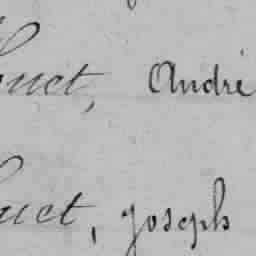 ouet, André
uet, Joseph